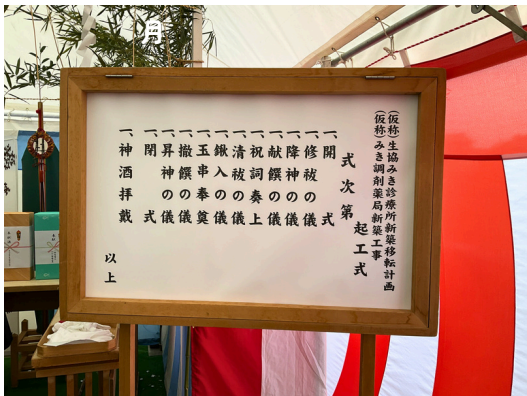 (仮称)生協みき診療所新築移転計画
(仮称)みき調剤薬局新築工事
起工式
式次第
一、開式
一、修祓の儀
一、降神の儀
一、献饌の儀
一、祝詞奏上
一、清祓の儀
一、鍬入の儀
一、玉串奉奠
一、撤饌の儀
一、昇神の儀
一、閉式
一、神酒拝戴
以上
月